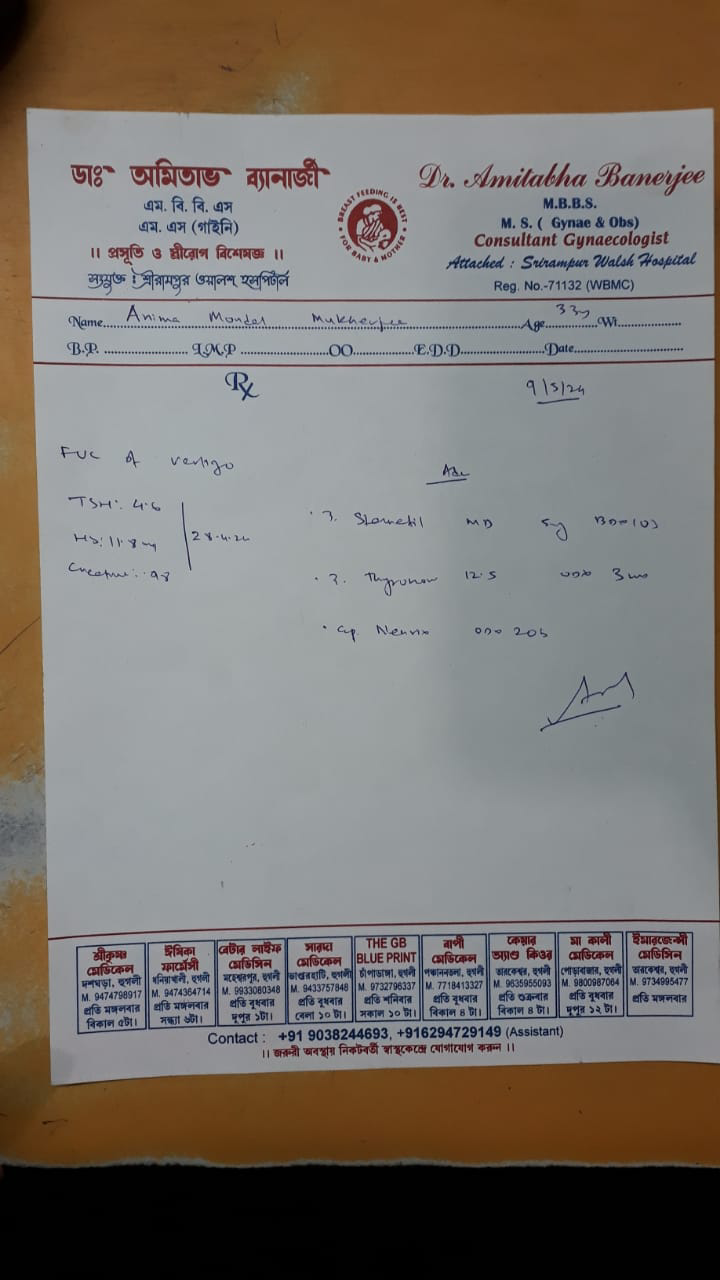 ডাঃ অমিতাভ ব্যানার্জী
এম. বি. বি. এস
এম. এস (গাইনি)
।। প্রসূতি ও স্ত্রীরোগ বিশেষজ্ঞ ।।
সংযুক্ত : শ্রীরামপুর ওয়ালশ হসপিটাল
BREAST FEEDING IS BEST
FOR BABY & MOTHER
Dr. Amitabha Banerjee
M.B.B.S.
M. S. ( Gynae & Obs)
Consultant Gynaecologist
Attached : Srirampur Walsh Hospital
Reg. No.-71132 (WBMC)
Name Anima Mondal Mukherjee Age 33y Wt.
B.P. L.M.P OO E.D.D. Date
Rx
9/5/24
FUC of vertigo
TSH: 4.6
Hb: 11.8
28.4.24
Adv
Stemetil MD BD
Thyronorm 12.5
Cap.
শ্রীকৃষ্ণ
মেডিকেল
দশঘড়া, হুগলী
M. 9474798917
প্রতি মঙ্গলবার
বিকাল ৫টা।
ঈষিকা
ফার্মেসী
ধনিয়াখালী, হুগলী
M. 9474364714
প্রতি মঙ্গলবার
সন্ধ্যা ৬টা।
বেটার লাইফ
মেডিসিন
মহেশ্বরপুর, হুগলী
M. 9933080348
প্রতি বুধবার
দুপুর ১টা।
সারদা
মেডিকেল
ভাণ্ডারহাটি, হুগলী
M. 9433757848
প্রতি বুধবার
বেলা ১০ টা।
THE GB
BLUE PRINT
চাঁপাডাঙ্গা, হুগলী
M. 9732796337
প্রতি শনিবার
সকাল ১০ টা।
বাপী
মেডিকেল
পঞ্চাননতলা, হুগলী
M. 7718413327
প্রতি বুধবার
বিকাল ৪ টা।
কেয়ার
অ্যাণ্ড কিওর
তারকেশ্বর, হুগলী
M. 9635955093
প্রতি শুক্রবার
বিকাল ৪ টা।
মা কালী
মেডিকেল
পোড়াবাজার, হুগলী
M. 9800987064
প্রতি বুধবার
দুপুর ১২ টা।
ইমারজেন্সী
মেডিসিন
তারকেশ্বর, হুগলী
M. 9734995477
প্রতি মঙ্গলবার
Contact : +91 9038244693, +916294729149 (Assistant)
।। জরুরী অবস্থায় নিকটবর্তী স্বাস্থ্যকেন্দ্রে যোগাযোগ করুন ।।